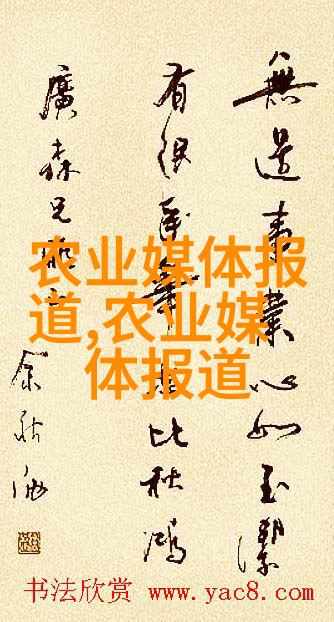 無邊事業心如玉潔
有限 比秋鴻
廣森兄
余秋
农业媒体报
道,农业媒
体报道
书法欣赏 www.yac8.com